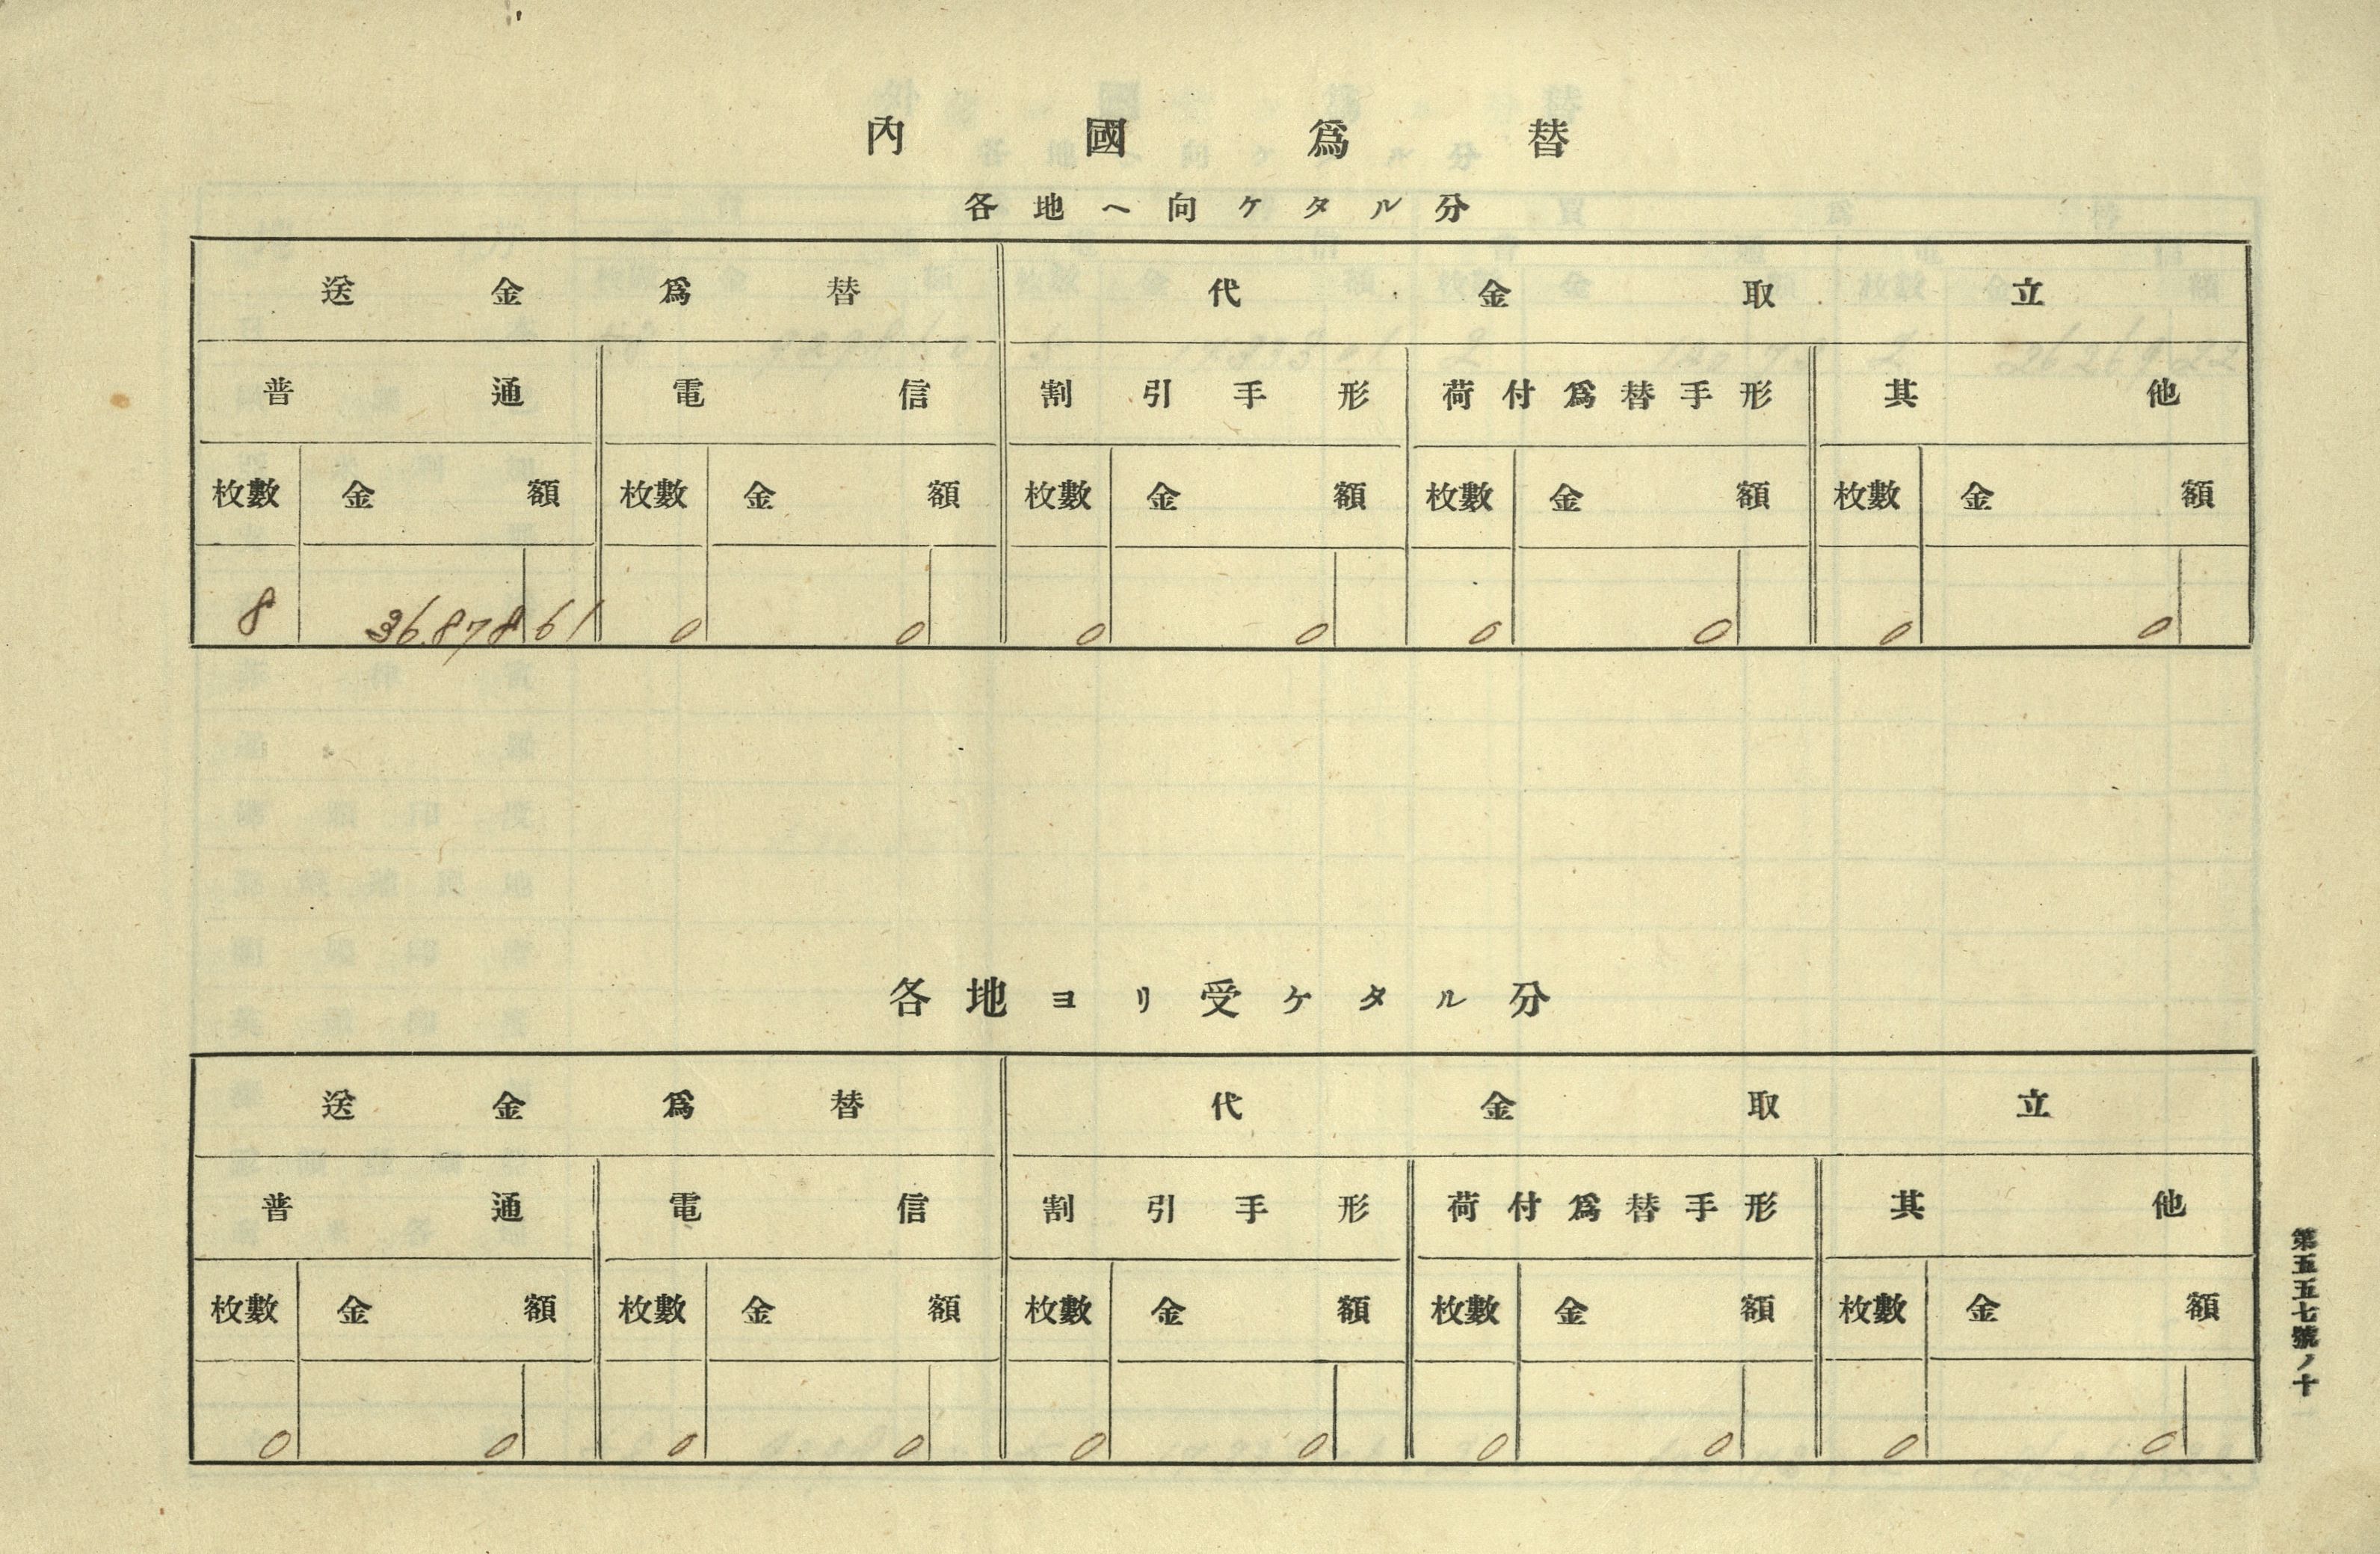 內國爲替
各地へ向ケタル分
送金爲替 代金取立
普通 電信 割引手形 荷付爲替手形 其他
枚數 金額 枚數 金額 枚數 金額 枚數 金額 枚數 金額
8 36.878 61 0 0 0 0 0 0 0 0
各地ヨリ受ケタル分
送金爲替 代金取立
普通 電信 割引手形 荷付爲替手形 其他
枚數 金額 枚數 金額 枚數 金額 枚數 金額 枚數 金額
0 0 0 0 0 0 0 0 0 0
第五五七號ノ十